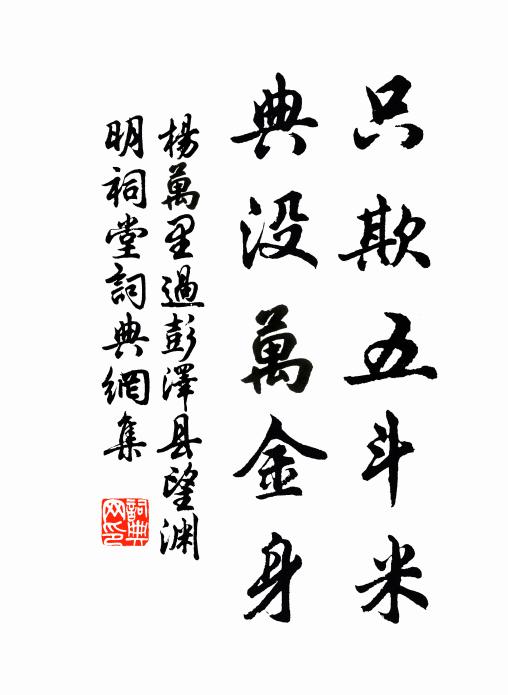 只欺五斗米
典没萬金身
楊萬里過彭澤县望渊
明祠堂詞典網集
詞典
网印